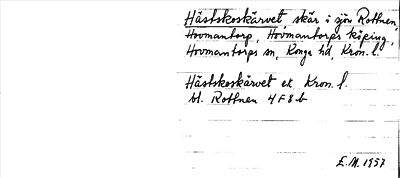 Hästskoskärvet, skär i sjön Rottnen,
Hovmantorp, Hovmantorps köping,
Hovmantorps sn, Konga hd, Kron. l.
Hästskoskärvet ek. Kron. l.
bl. Rottnen 4 F 8 b
E.M. 1957